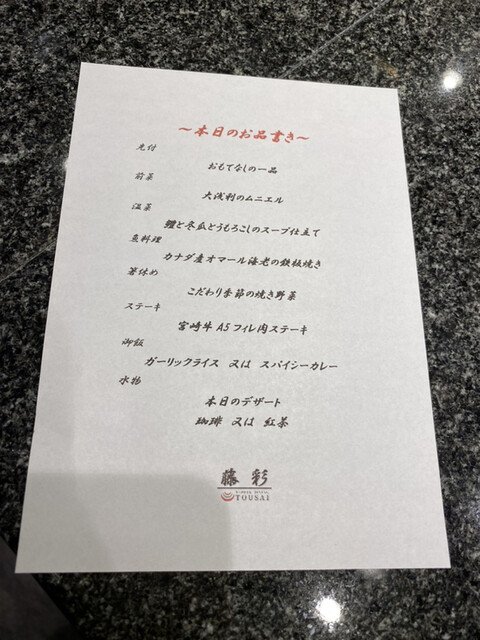 ～本日のお品書き～
先付
おもてなしの一品
前菜
大浅利のムニエル
温菜
鱧と冬瓜とうもろこしのスープ仕立て
魚料理
カナダ産オマール海老の鉄板焼き
箸休め
こだわり季節の焼き野菜
ステーキ
宮崎牛 A5 フィレ肉ステーキ
御飯
ガーリックライス 又は スパイシーカレー
水物
本日のデザート
珈琲 又は 紅茶
藤 彩
TOUSAI